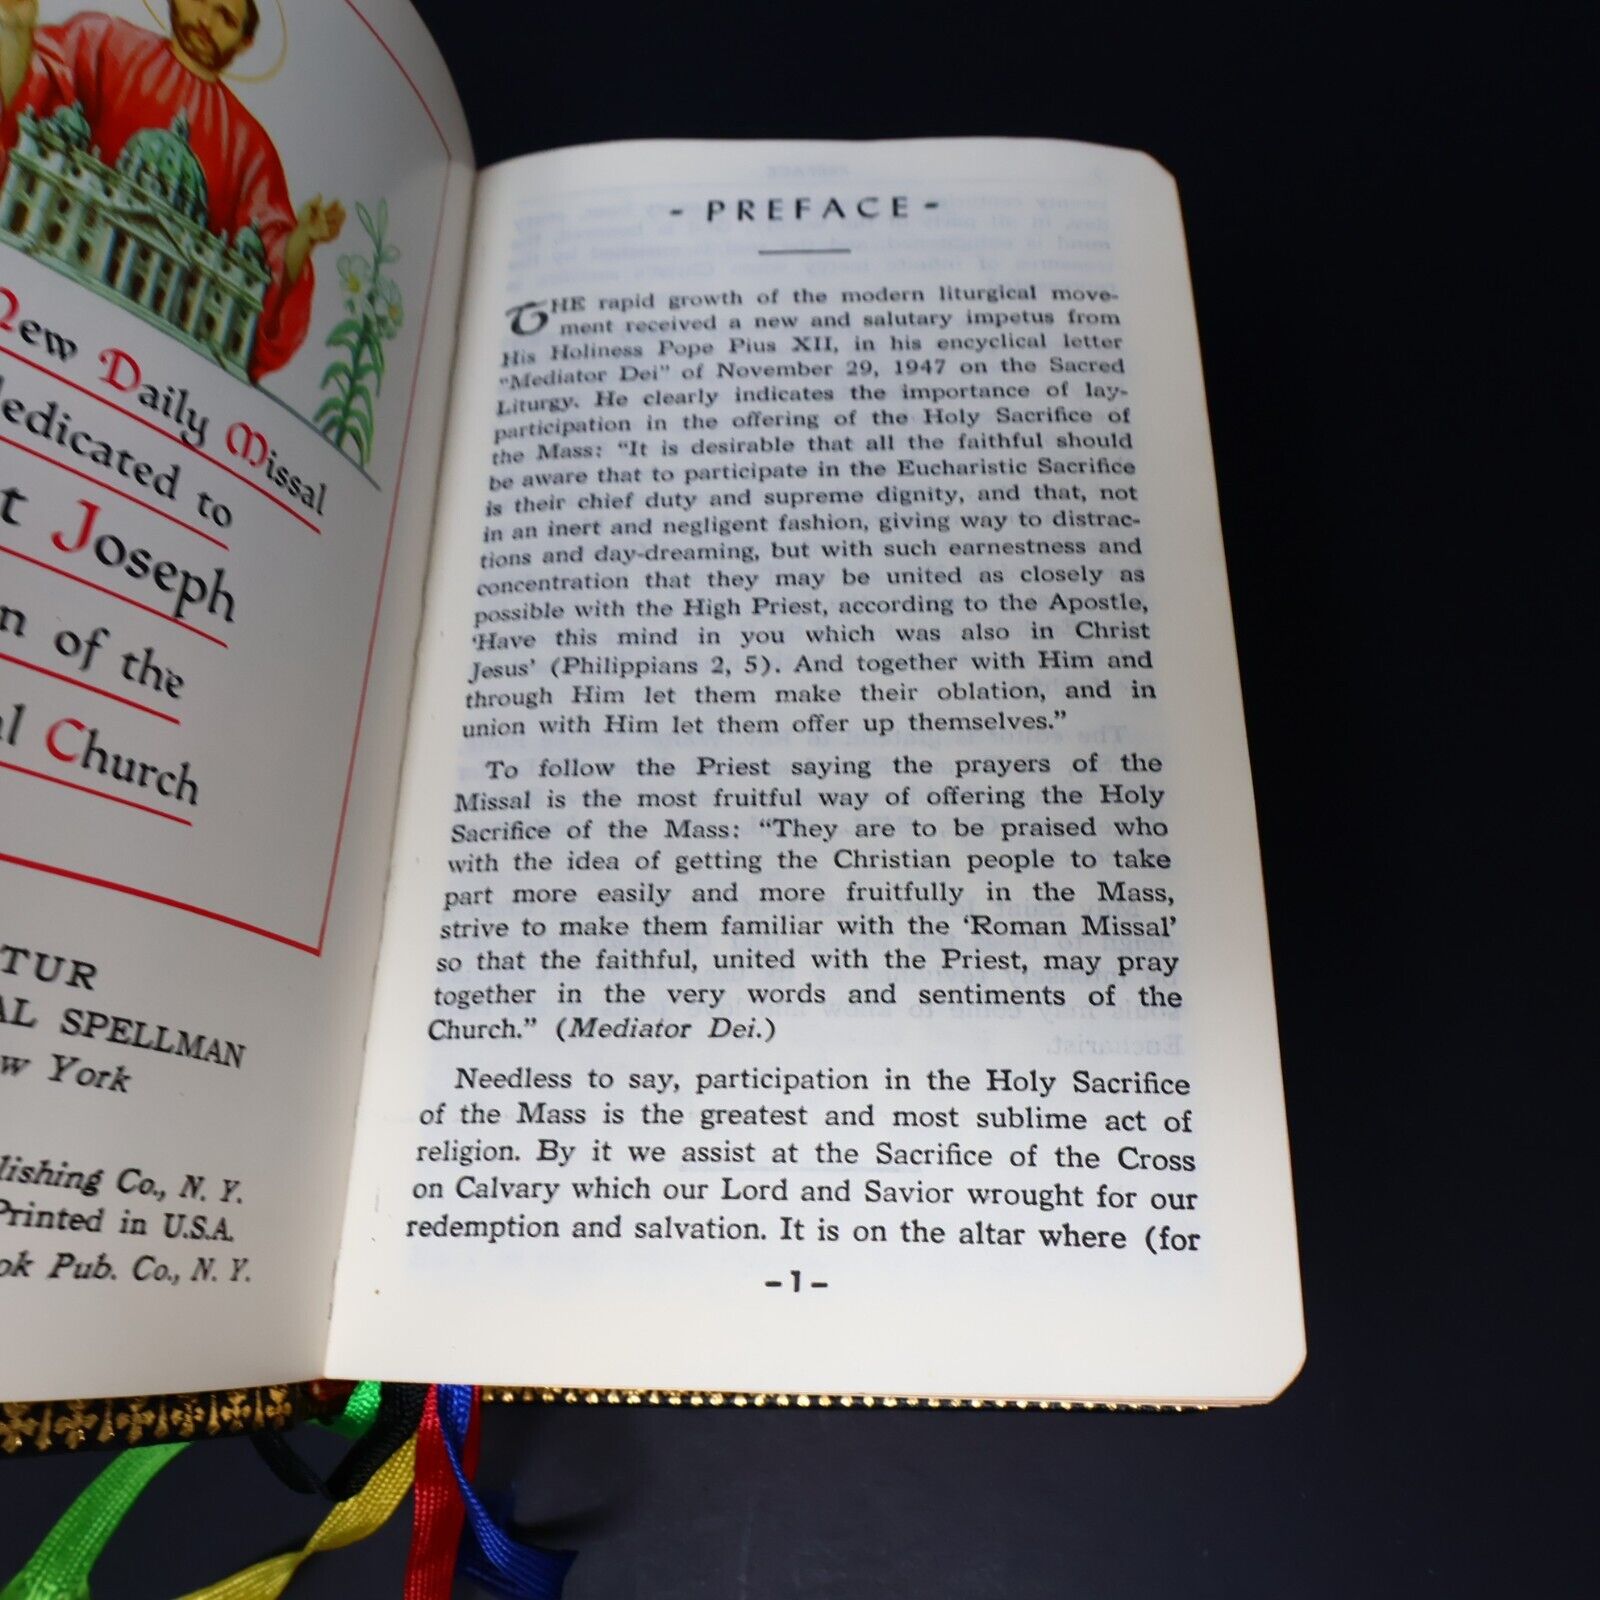 New Daily Missal
dedicated to
t Joseph
n of the
l Church
TUR
AL SPELLMAN
w York
lishing Co., N. Y.
Printed in U.S.A.
ok Pub. Co., N. Y.
- PREFACE -
THE rapid growth of the modern liturgical move-
ment received a new and salutary impetus from
His Holiness Pope Pius XII, in his encyclical letter
"Mediator Dei" of November 29, 1947 on the Sacred
Liturgy. He clearly indicates the importance of lay-
participation in the offering of the Holy Sacrifice of
the Mass: "It is desirable that all the faithful should
be aware that to participate in the Eucharistic Sacrifice
is their chief duty and supreme dignity, and that, not
in an inert and negligent fashion, giving way to distrac-
tions and day-dreaming, but with such earnestness and
concentration that they may be united as closely as
possible with the High Priest, according to the Apostle,
'Have this mind in you which was also in Christ
Jesus' (Philippians 2, 5). And together with Him and
through Him let them make their oblation, and in
union with Him let them offer up themselves."
To follow the Priest saying the prayers of the
Missal is the most fruitful way of offering the Holy
Sacrifice of the Mass: "They are to be praised who
with the idea of getting the Christian people to take
part more easily and more fruitfully in the Mass,
strive to make them familiar with the 'Roman Missal'
so that the faithful, united with the Priest, may pray
together in the very words and sentiments of the
Church." (Mediator Dei.)
Needless to say, participation in the Holy Sacrifice
of the Mass is the greatest and most sublime act of
religion. By it we assist at the Sacrifice of the Cross
on Calvary which our Lord and Savior wrought for our
redemption and salvation. It is on the altar where (for
-1-